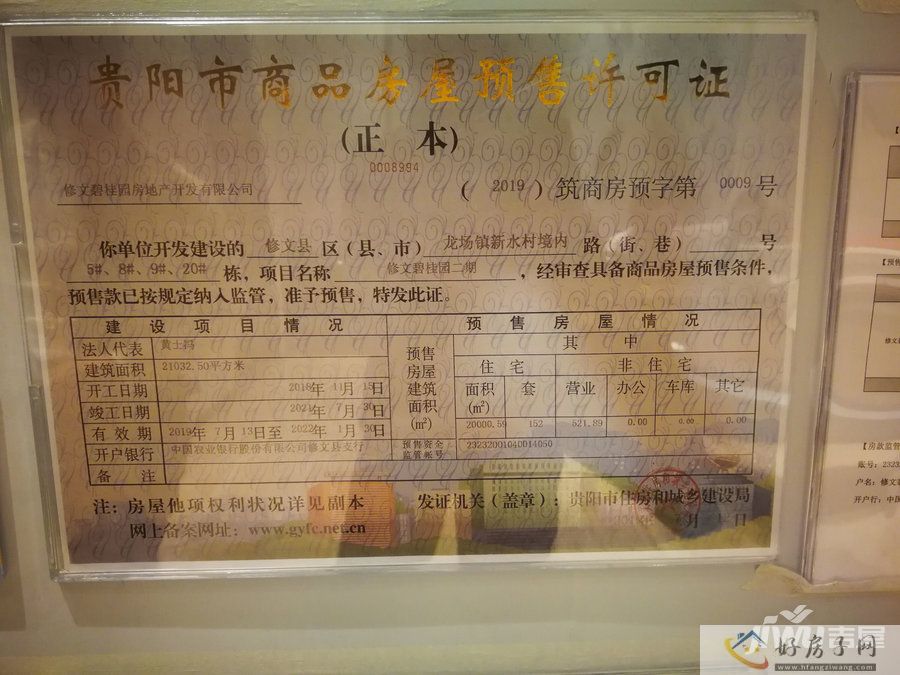 贵阳市商品房屋预售许可证
(正 本)
0008994
修文碧桂园房地产开发有限公司
( 2019 ) 筑商房预字第 0009 号
你单位开发建设的 修文县 区(县、市) 龙场镇新水村境内 路(街、巷) 号
5#、8#、9#、20# 栋，项目名称 修文碧桂园二期 ，经审查具备商品房屋预售条件，
预售款已按规定纳入监管，准予预售，特发此证。
建设项目情况 预售房屋情况
法人代表
预售房屋建筑面积(㎡) 其中
建筑面积 21032.50平方米
住宅 非住宅
开工日期 2018年 11月 15日
面积(㎡) 套 营业 办公 车库 其它
竣工日期 2021年 7月 30日
20000.59 152 521.89 0.00 0.00 0.00
有效期 2019年 7月 13日至 2022年 1月 30日
开户银行 中国农业银行股份有限公司修文县支行
预售资金监管帐号 23232001040014050
备注
注：房屋他项权利状况详见副本 发证机关(盖章)：贵阳市住房和城乡建设局
网上备案网址：www.gyfc.net.cn 年 月 日
吉屋
好房子网
www.hfangziwang.com